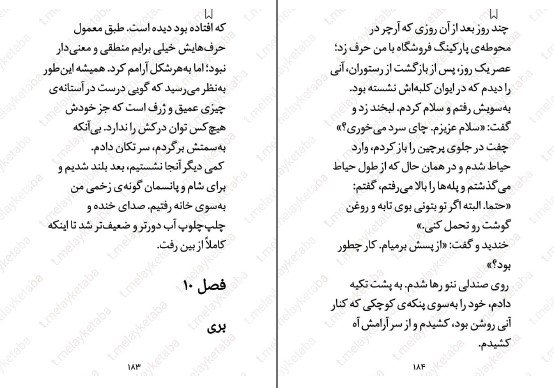 که افتاده بود دیده است. طبق معمول
حرف‌هایش خیلی برایم منطقی و معنی‌دار
نبود؛ اما به‌هرشکل آرامم کرد. همیشه این‌طور
به‌نظر می‌رسید که گویی درست در آستانه‌ی
چیزی عمیق و ژرف است که جز خودش
هیچ‌کس توان درکش را ندارد. بی‌آنکه
به‌سمتش برگردم، سر تکان دادم.
کمی دیگر آنجا نشستیم، بعد بلند شدیم و
برای شام و پانسمان گونه‌ی زخمی من
به‌سوی خانه رفتیم. صدای خنده و
چلپ‌چلوپ آب دورتر و ضعیف‌تر شد تا اینکه
کاملاً از بین رفت.
فصل ۱۰
بری
۱۸۳
چند روز بعد از آن روزی که آرچر در
محوطه‌ی پارکینگ فروشگاه با من حرف زد؛
عصر یک روز، پس از بازگشت از رستوران، آنی
را دیدم که در ایوان کلبه‌اش نشسته بود.
به‌سویش رفتم و سلام کردم. لبخند زد و
گفت: «سلام عزیزم. چای سرد می‌خوری؟»
چفت در جلوی پرچین را باز کردم، وارد
حیاط شدم و در همان حال که از طول حیاط
می‌گذشتم و پله‌ها را بالا می‌رفتم، گفتم:
«حتما. البته اگر تو بتونی بوی تابه و روغن
گوشت رو تحمل کنی.»
خندید و گفت: «از پسش برمیام. کار چطور
بود؟»
روی صندلی ننو رها شدم. به پشت تکیه
دادم، خود را به‌سوی پنکه‌ی کوچکی که کنار
آنی روشن بود، کشیدم و از سر آرامش آه
کشیدم.
۱۸۴